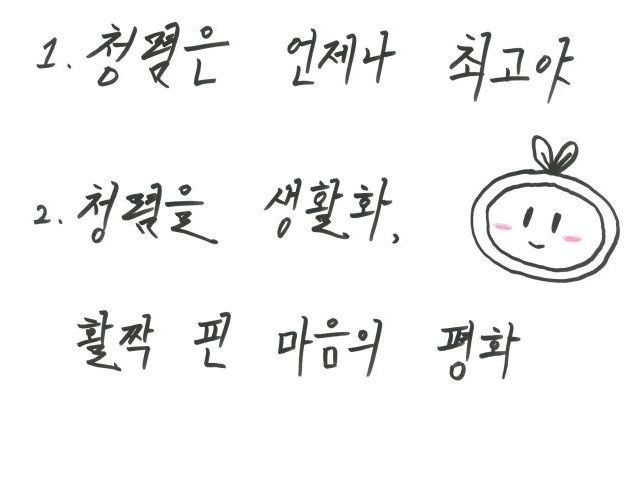 1. 청렴은 언제나 최고야
2. 청렴을 생활화,
활짝 핀 마음의 평화